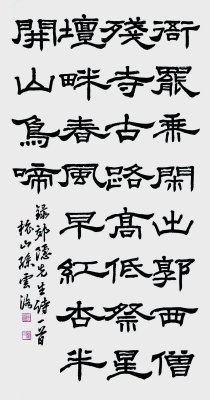 衙罷乘閑出郭西僧
殘寺古路高低祭星
壇畔春風早紅杏半
開山鳥啼
錄郊隱先生詩一首
山孫雲